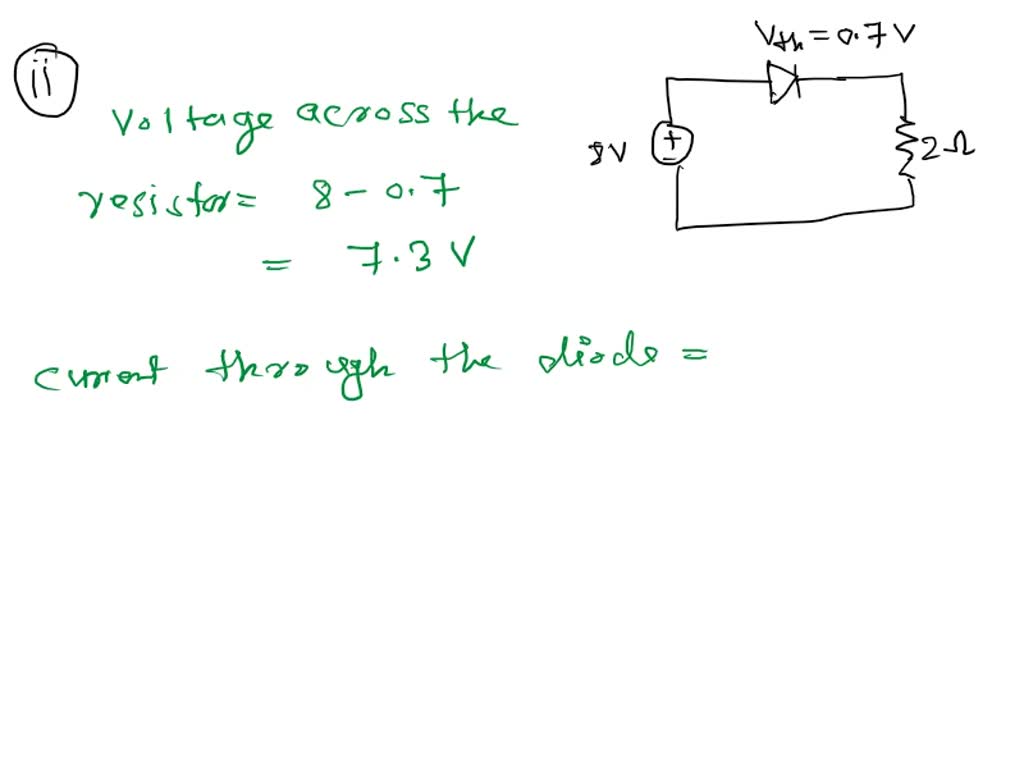 ii
Voltage across the
resistor = 8 - 0.7
= 7.3 V
current through the diode =
Vth = 0.7 V
8V
+
-
2Ω